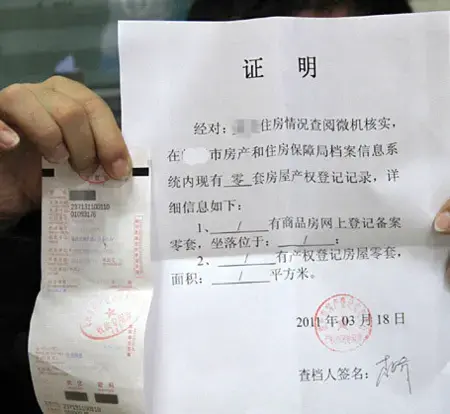 证 明
经对：住房情况查阅微机核实，
在 市房产和住房保障局档案信息系
统内现有 零 套房屋产权登记记录，详
细信息如下：
1、 / 有商品房网上登记备案
零套，坐落位于： / ；
2、 / 有产权登记房屋零套，
面积： / 平方米。
2011 年 03 月 18 日
查档人签名：
237131100310
01093176